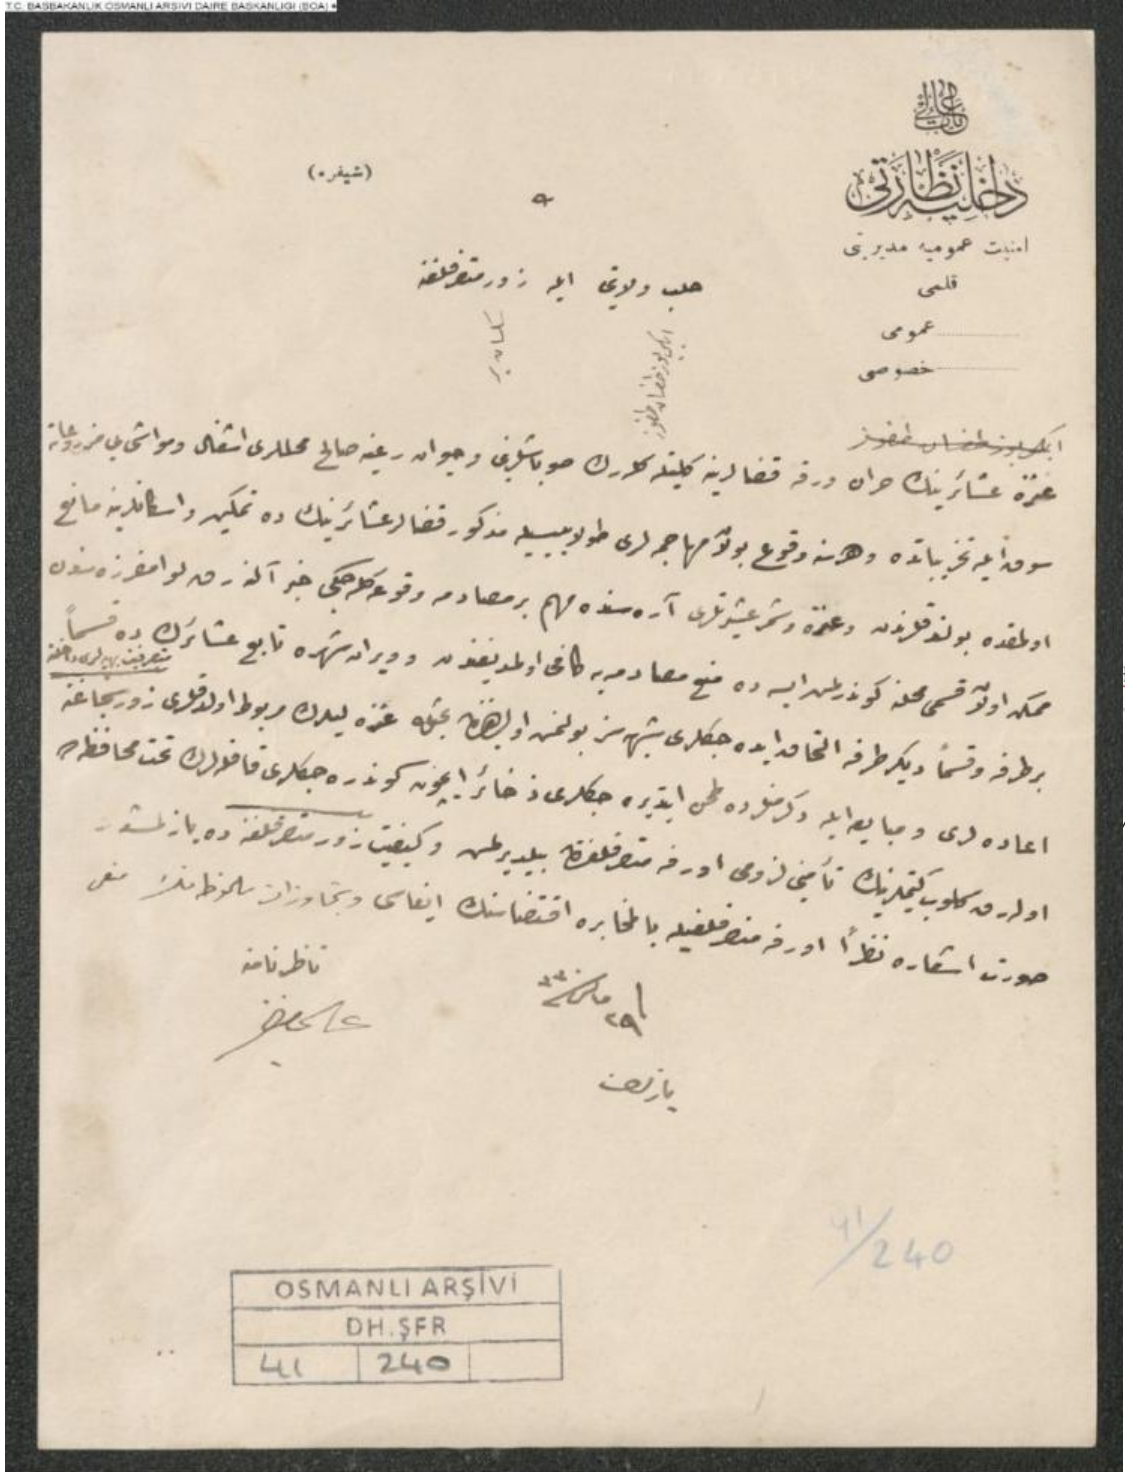 T.C. BAŞBAKANLIK OSMANLI ARŞİVİ DAİRE BAŞKANLIĞI (BOA)
باب عالی
داخلیه نظارتی
امنیت عمومیه مدیریتی
قلمی
عمومی
خصوصی
(شیفره)
حلب ولایتی ایله زور متصرفلغنه
عنزه عشائرینک حران ورقه قضالرینه کلیتله کلەرک صو باشلرینی وحیوان رعینه صالح محللری اشغال ومواشی یی مزروعاته
سوق ایله تخریباتده وهر سنه وقوع بولان مهاجمه لری طولاییسیله مذکور قضالر عشائرینک ده تمکین واسکانلرینه مانع
اولمقده بولندقلرندن وعنزه وشمر عشیرتلری آره سنده مهم بر مصادمه وقوعه کله جکی خبر آلنه رق لوا مفرزه سندن
ممکن اولان قسمی محلنه کوندرلمش ایسه ده منع مصادمه یه کافی اولمدیغندن وویرانشهره تابع عشائرک ده قسماً
بر طرفه وقسماً دیکر طرفه التحاق ایده جکلری شبهه سز بولنمش اولدیغندن عنزه لیلرک مربوط اولدقلری زور سنجاغنه
اعاده لری ومبایعه ایله دکرمنلرده طحن ایتدیره جکلری ذخائر ایچون کوندره جکلری قافله لرک تحت محافظه ده
اوله رق کلوب کیتملرینک تأمینی لزومی اورفه متصرفلغندن بیلدیرلمش وکیفیت زور متصرفلغنه ده یازلمشدر
صورت اشعاره نظراً اورفه متصرفلغیله بالمخابره اقتضاسنک ایفاسی وتجاوزات ملحوظه نک منعی
ناظر نامنه
٢٩ مارت ٣٣٠
یازلمشدر
41/240
OSMANLI ARŞİVİ
DH.ŞFR
41 240